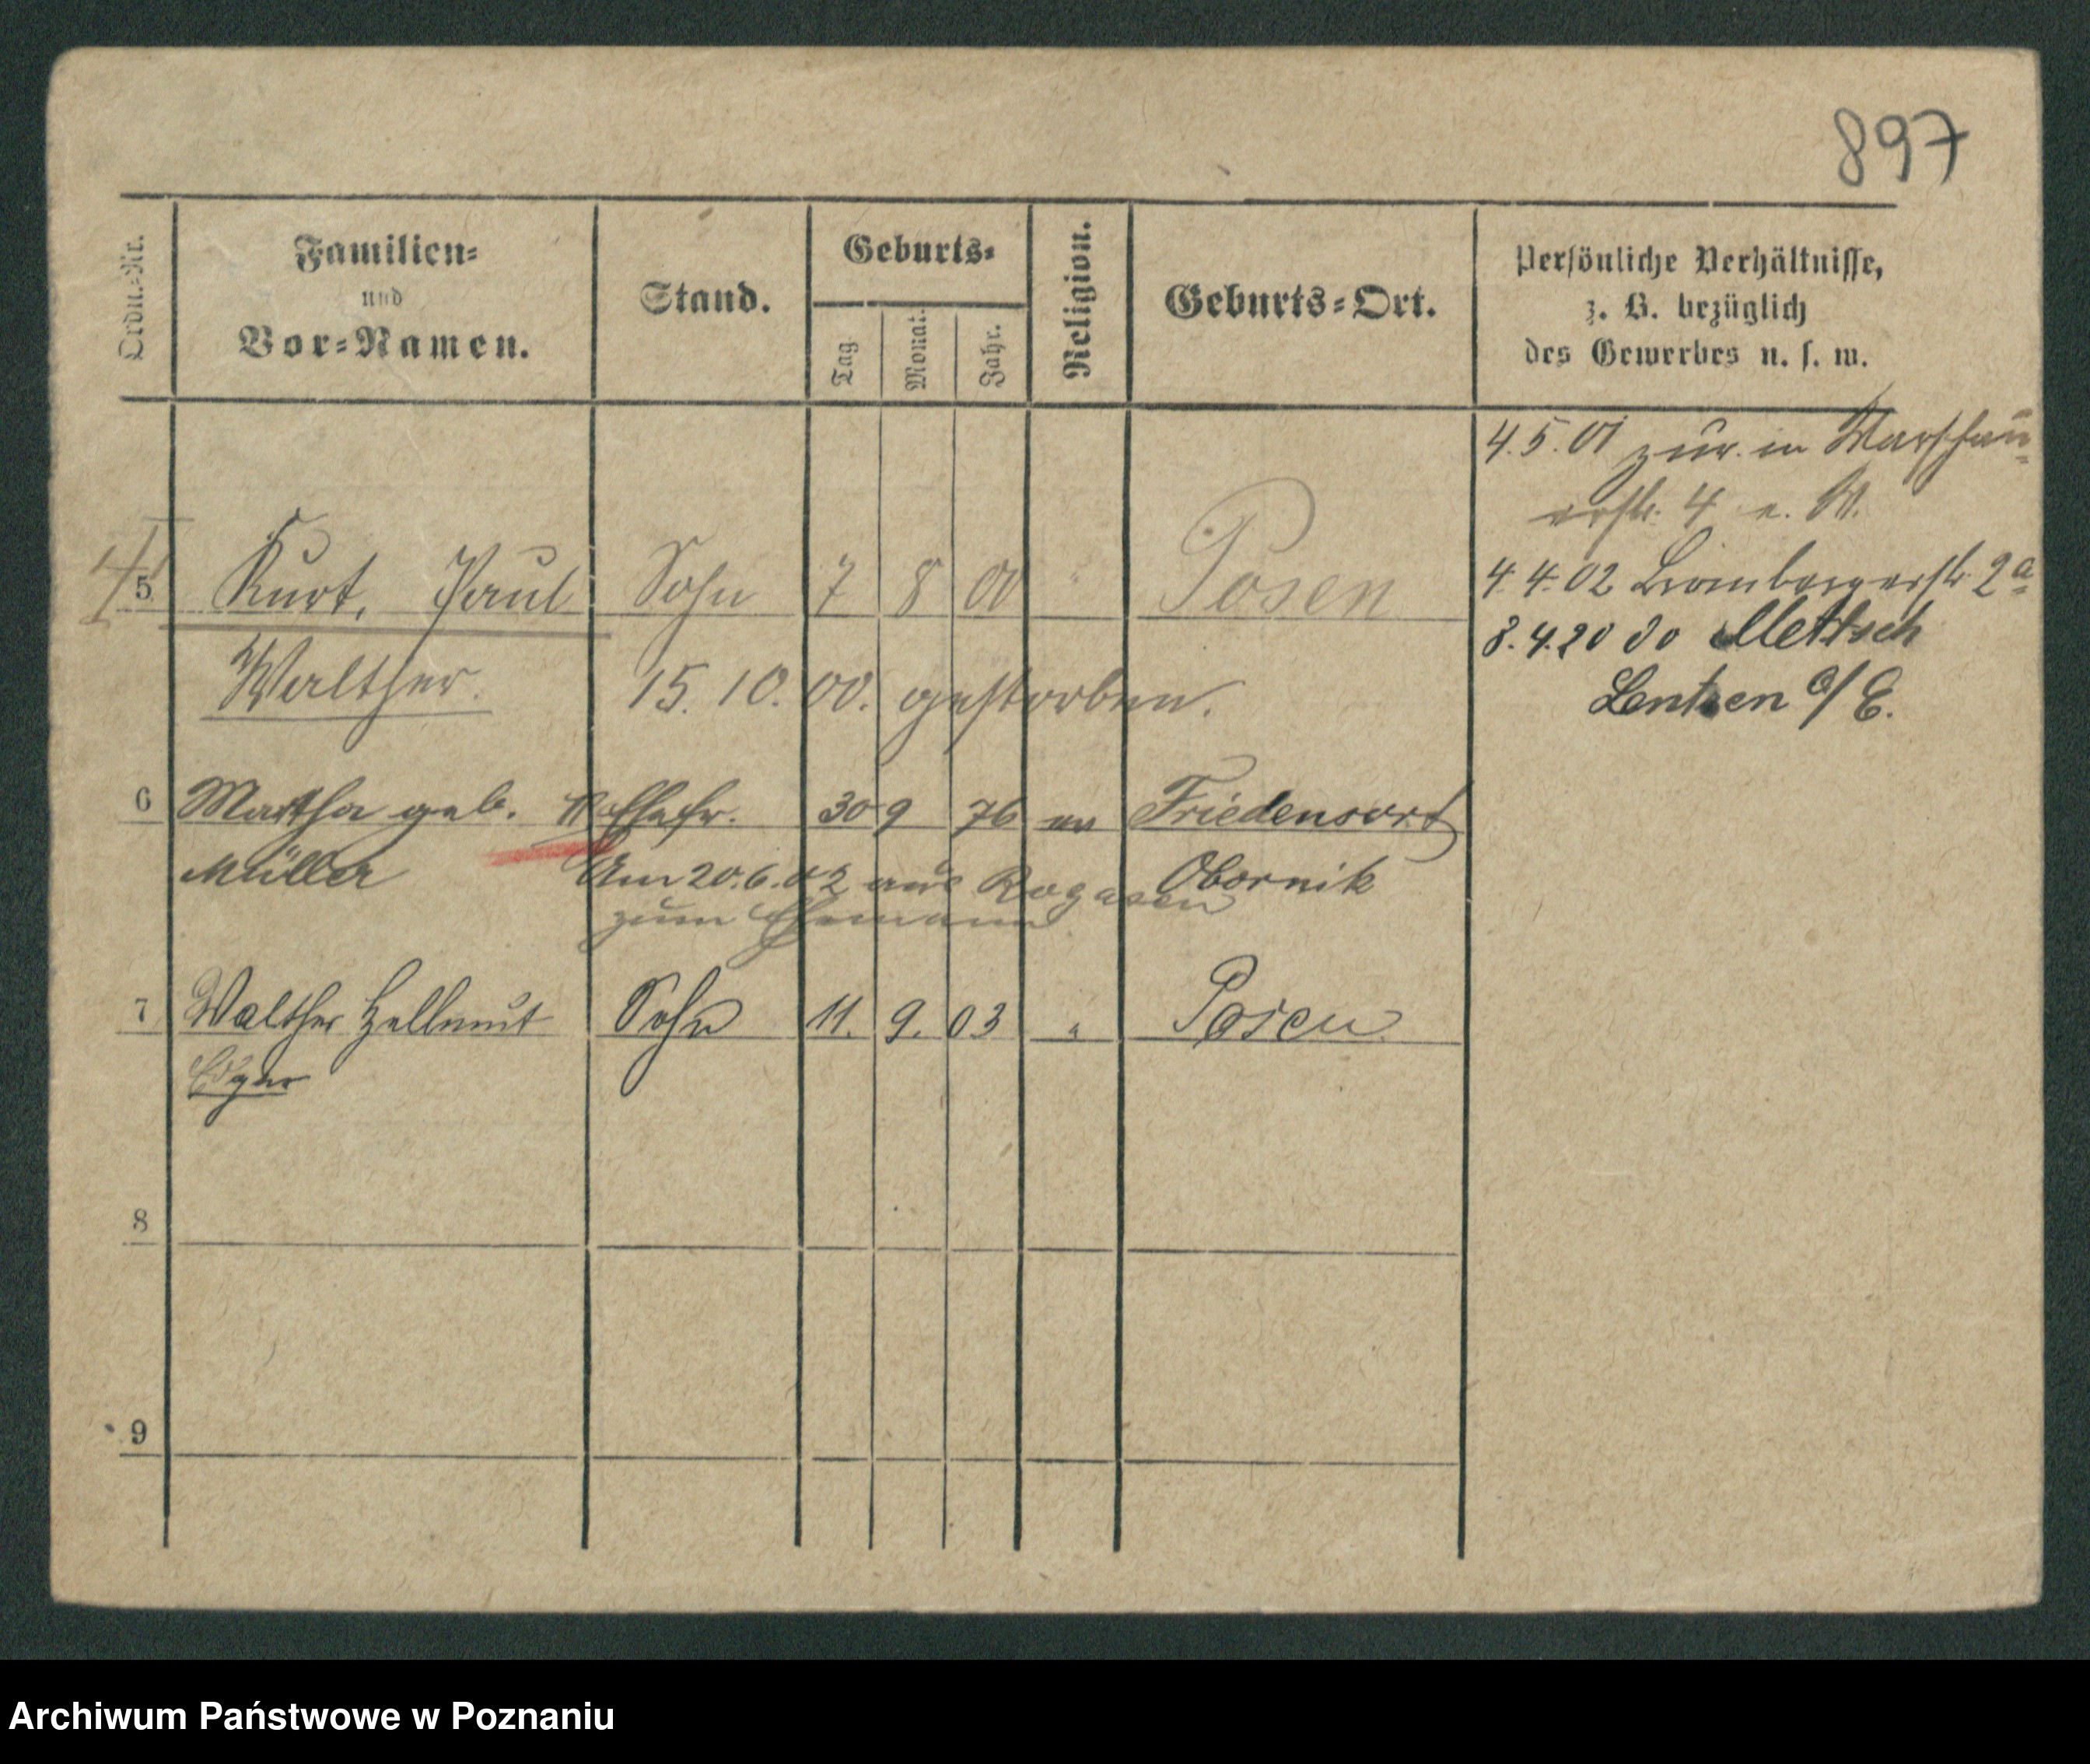 897
Ordn.-Nr.
Familien-
und
Vor-Namen.
Stand.
Geburts-
Tag
Monat.
Jahr.
Religion.
Geburts-Ort.
Persönliche Verhältnisse,
z. B. bezüglich
des Gewerbes u. s. w.
4.5.01 zur. in Warschau-
erstr. 4 e. W.
5 Kurt, Paul Sohn 7 8 00 " Posen
4.4.02 Brombergerstr. 2a
Walther. 15.10.00. gestorben.
8.4.20 do Mettsch
Lentzen a/E.
6 Martha geb. II Ehefr. 30 9 76 ev Friedensort
Müller Am 20.6.02 aus Rogasen Obornik
zum Ehemann
7 Walther Hellmut Sohn 11. 9. 03 " Posen
Edgar
8
9
Archiwum Państwowe w Poznaniu